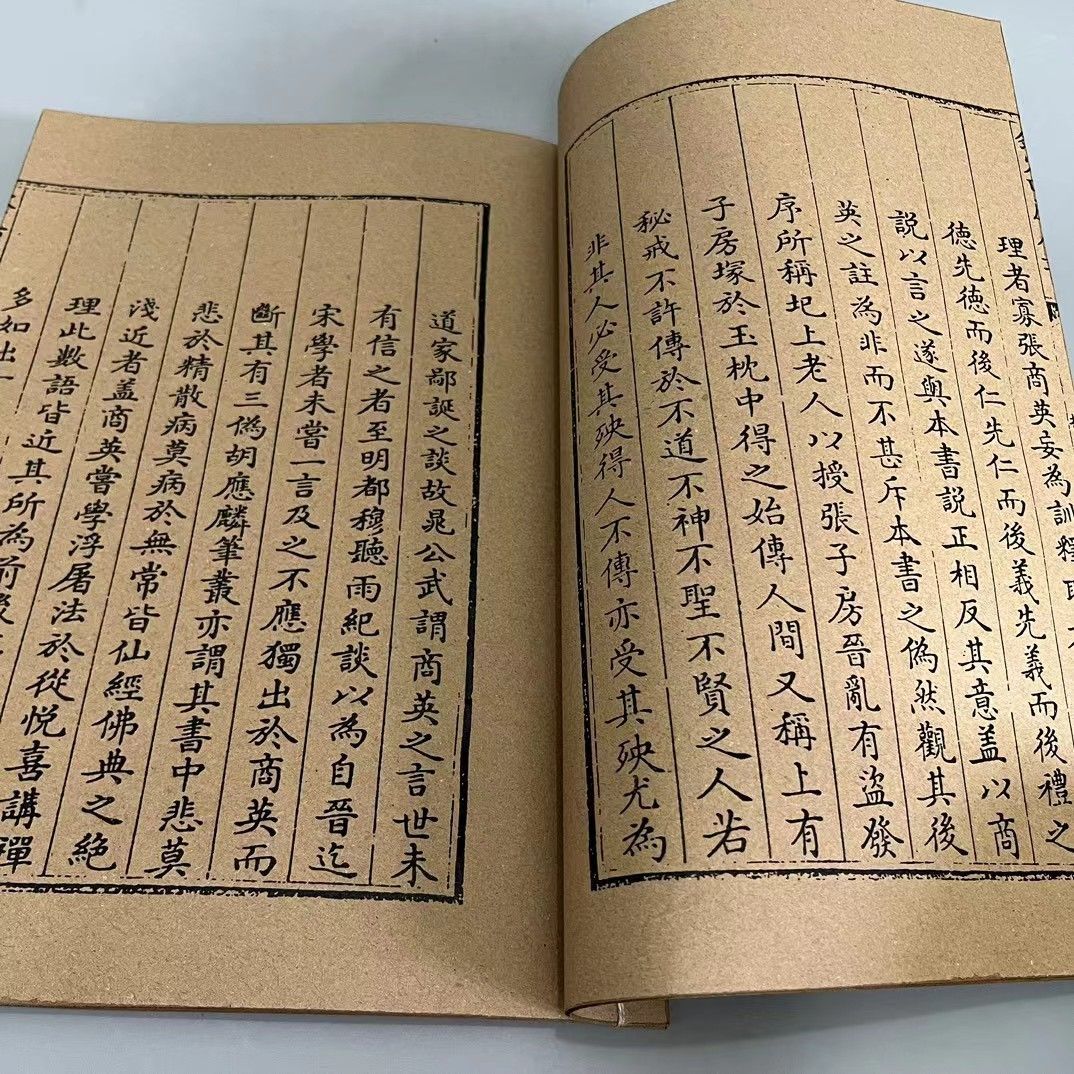 理者寡張商英妄為訓釋
德先德而後仁先仁而後義先義而後禮之
説以言之遂與本書説正相反其意盖以商
英之註為非而不甚斥本書之偽然觀其後
序所稱圯上老人以授張子房晉亂有盜發
子房塚於玉枕中得之始傳人間又稱上有
秘戒不許傳於不道不神不聖不賢之人若
非其人必受其殃得人不傳亦受其殃尤為
道家鄙誕之談故晁公武謂商英之言世未
有信之者至明都穆聽雨紀談以為自晉迄
宋學者未嘗一言及之不應獨出於商英而
斷其有三偽胡應麟筆叢亦謂其書中悲莫
悲於精散病莫病於無常皆仙經佛典之絶
淺近者盖商英嘗學浮屠法於從悅喜講禪
理此數語皆近其所為前後
多如出一